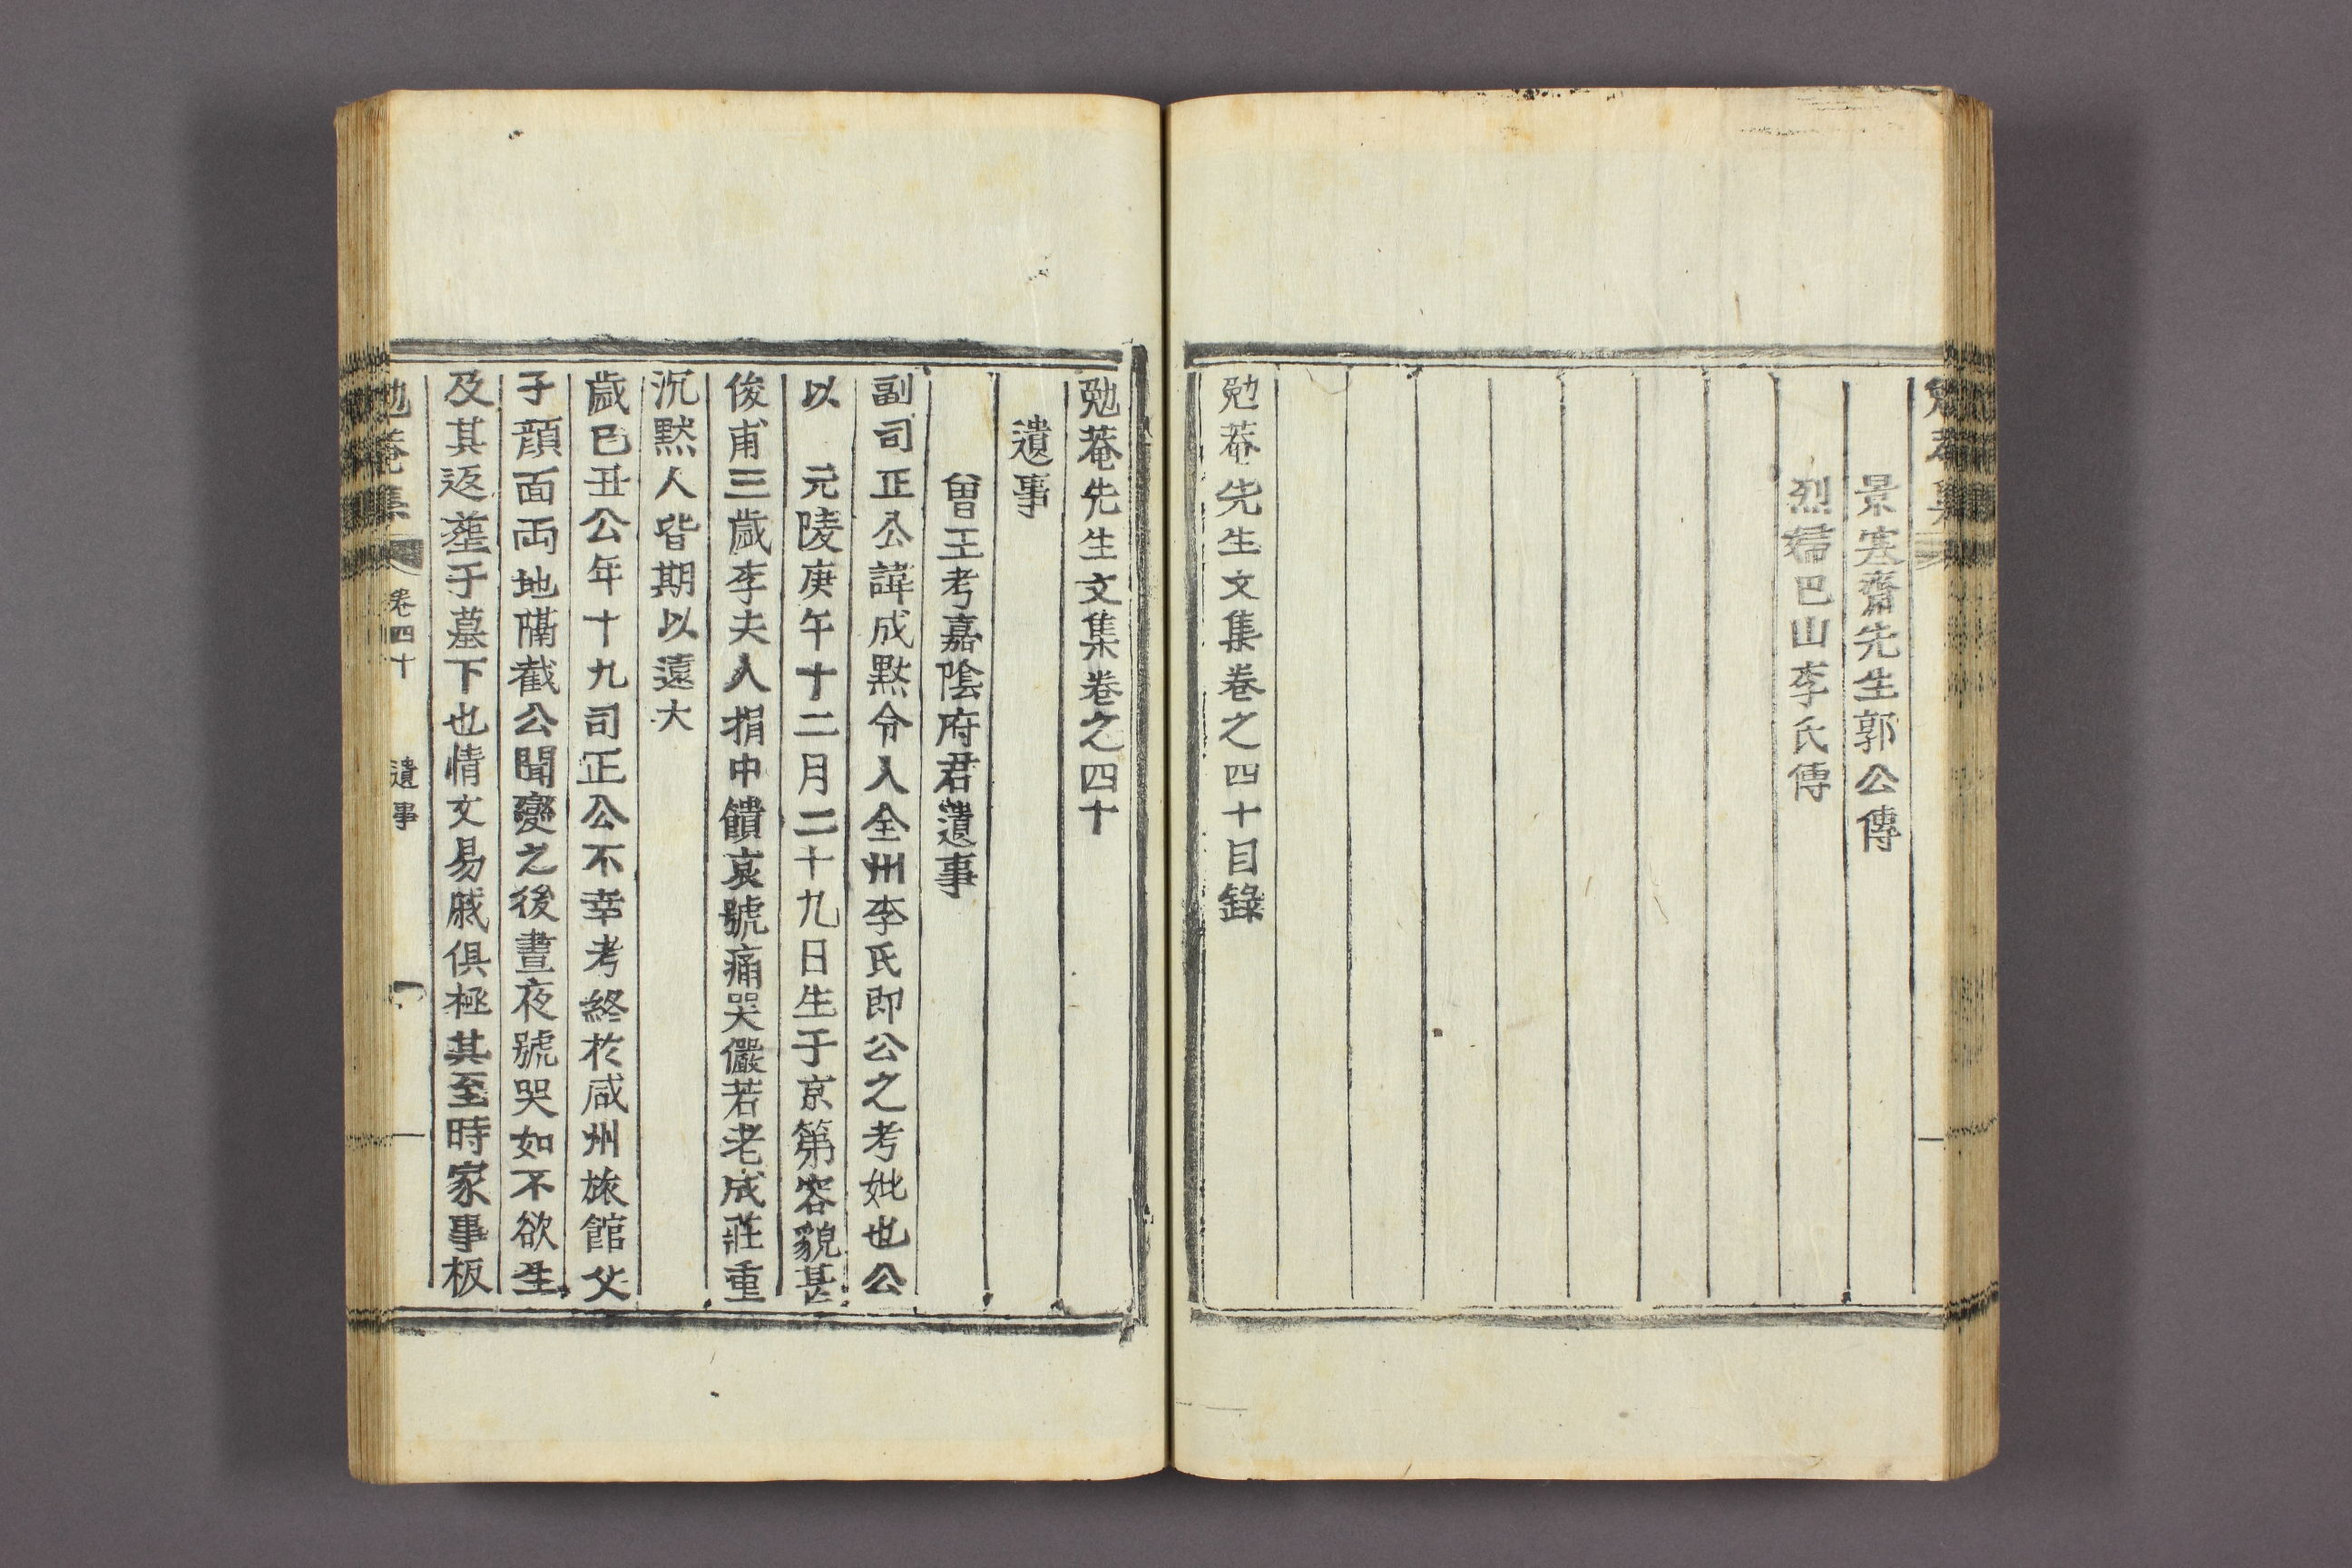 景寒齋先生郭公傳
烈婦巴山李氏傳
勉菴先生文集卷之四十目錄
勉菴先生文集卷之四十
遺事
曾王考嘉陰府君遺事
副司正公諱成默令人全州李氏即公之考妣也公
以 元陵庚午十二月二十九日生于京第容貌甚
俊甫三歲李夫人捐中饋哀號痛哭儼若老成莊重
沉默人皆期以遠大
歲己丑公年十九司正公不幸考終於咸州旅館父
子顏面兩地隔截公聞變之後晝夜號哭如不欲生
及其返塟于墓下也情文易戚俱極其至時家事板
勉菴集 卷四十 遺事 一